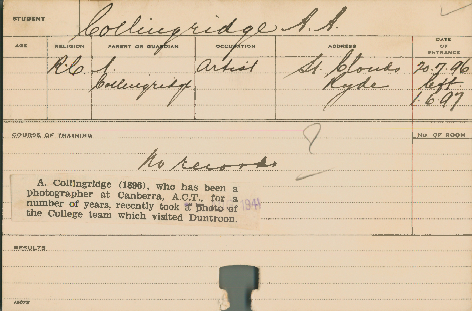 STUDENT Collingridge A. A.
AGE RELIGION PARENT OR GUARDIAN OCCUPATION ADDRESS DATE OF ENTRANCE
R.C. A. Collingridge Artist St. Clouds Ryde 20.7.96 left 1.6.97
COURSE OF TRAINING No OF ROOM
No records
A. Collingridge (1896), who has been a
photographer at Canberra, A.C.T., for a
number of years, recently took a photo of
the College team which visited Duntroon.
RESULTS